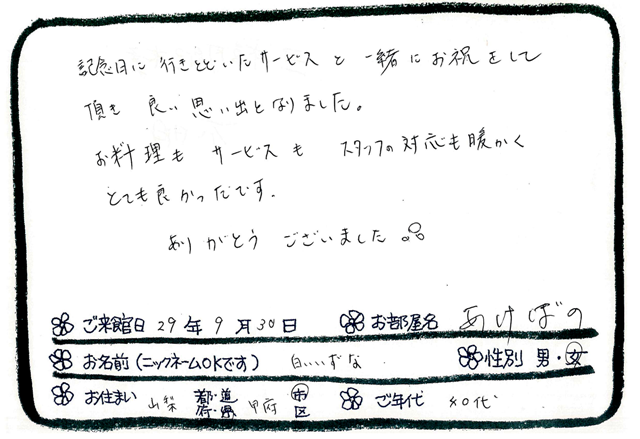 記念日に 行きとどいたサービス と 一緒に お祝をして
頂き 良い 思い出となりました。
お料理も サービスも スタッフの対応も暖かく
とても良かったです。
ありがとう ございました
ご来館日 29年 9月 30日 お部屋名 あけぼの
お名前(ニックネームOKです) 白いいずな 性別 男・女
お住まい 山梨 都・道府・県 甲府 市区 ご年代 40代